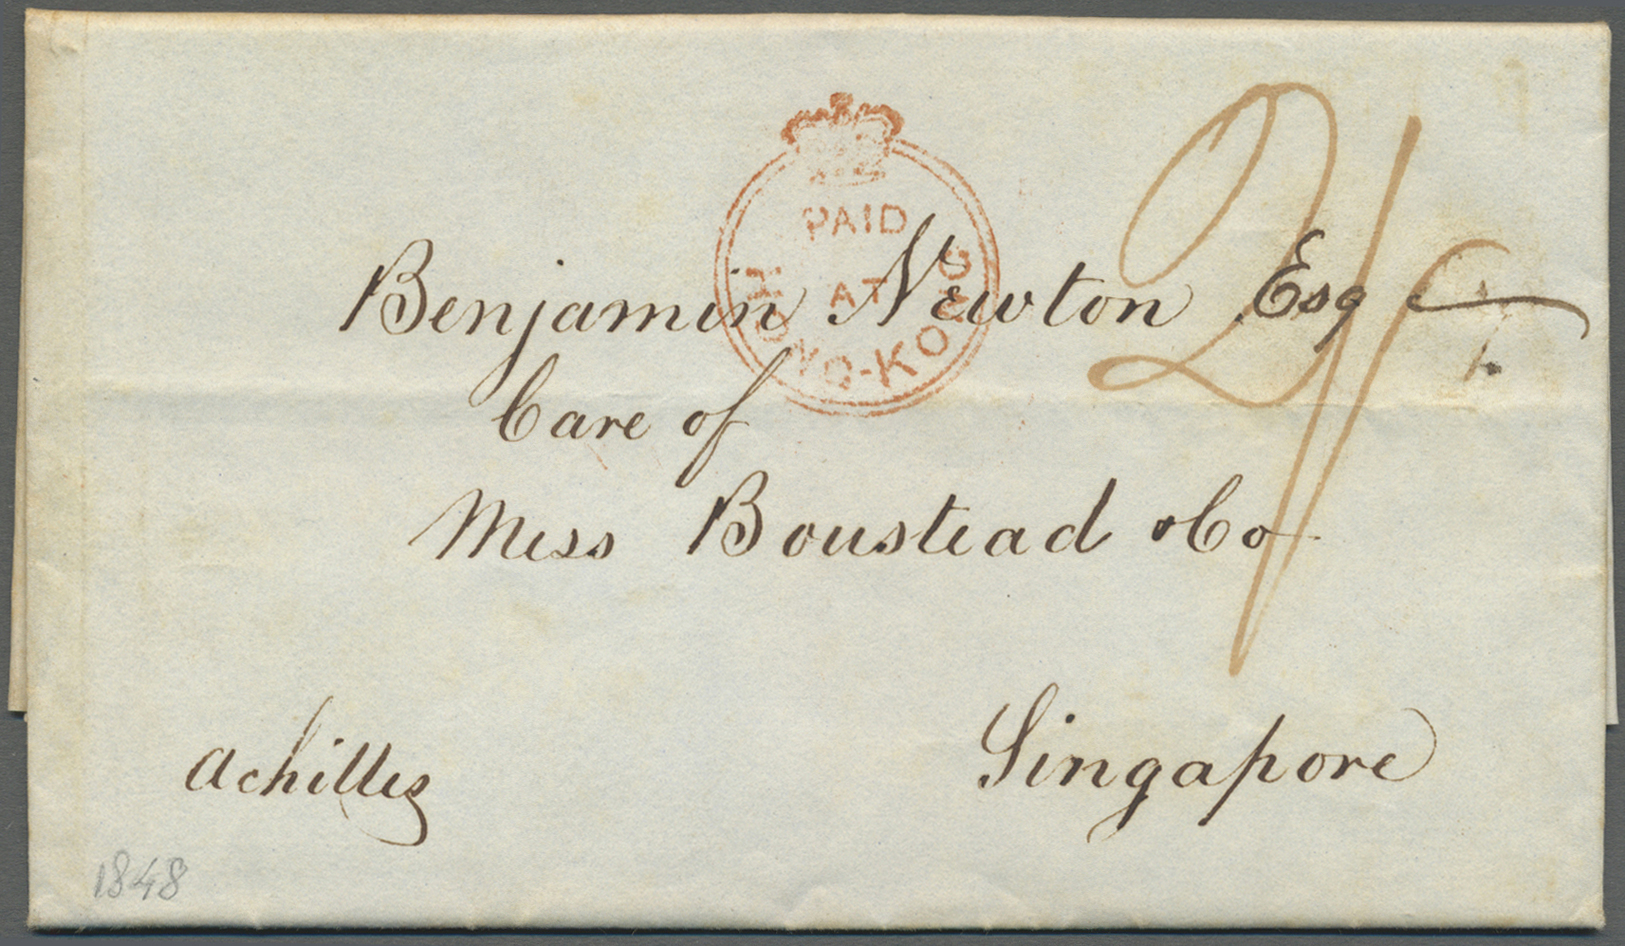 PAID
AT
HONG-KONG
2/
Benjamin Newton Esq
Care of
Mess Boustead & Co
Singapore
Achilles
1848